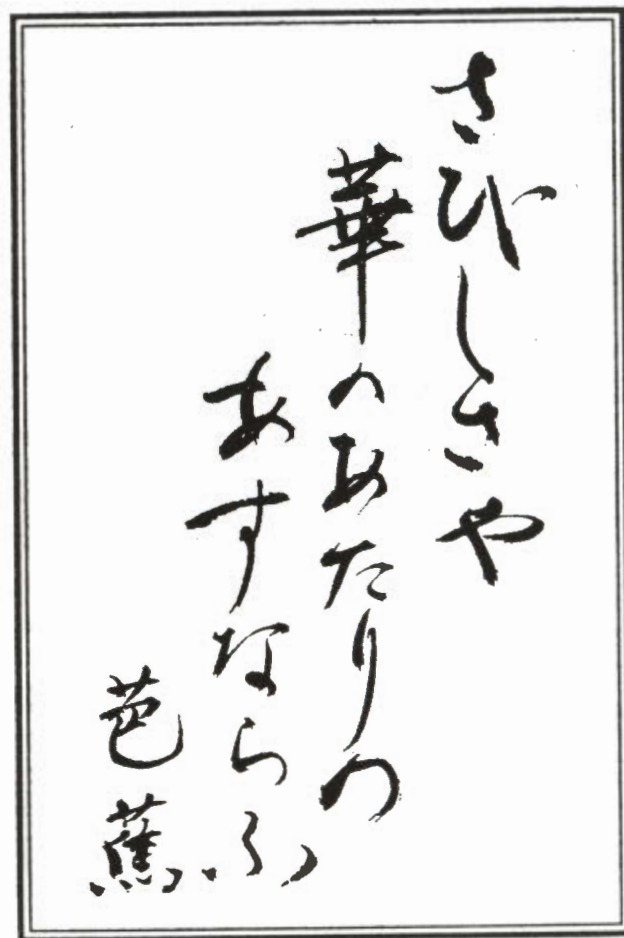 さびしさや
華のあたりの
あすならふ
芭蕉